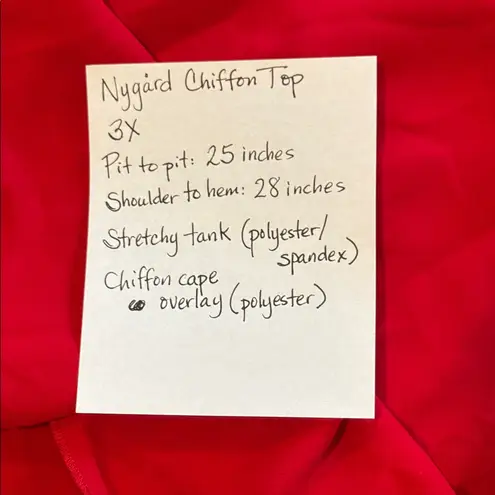 Nygård Chiffon Top
3X
Pit to pit: 25 inches
Shoulder to hem: 28 inches
Stretchy tank (polyester/
spandex)
Chiffon cape
overlay (polyester)